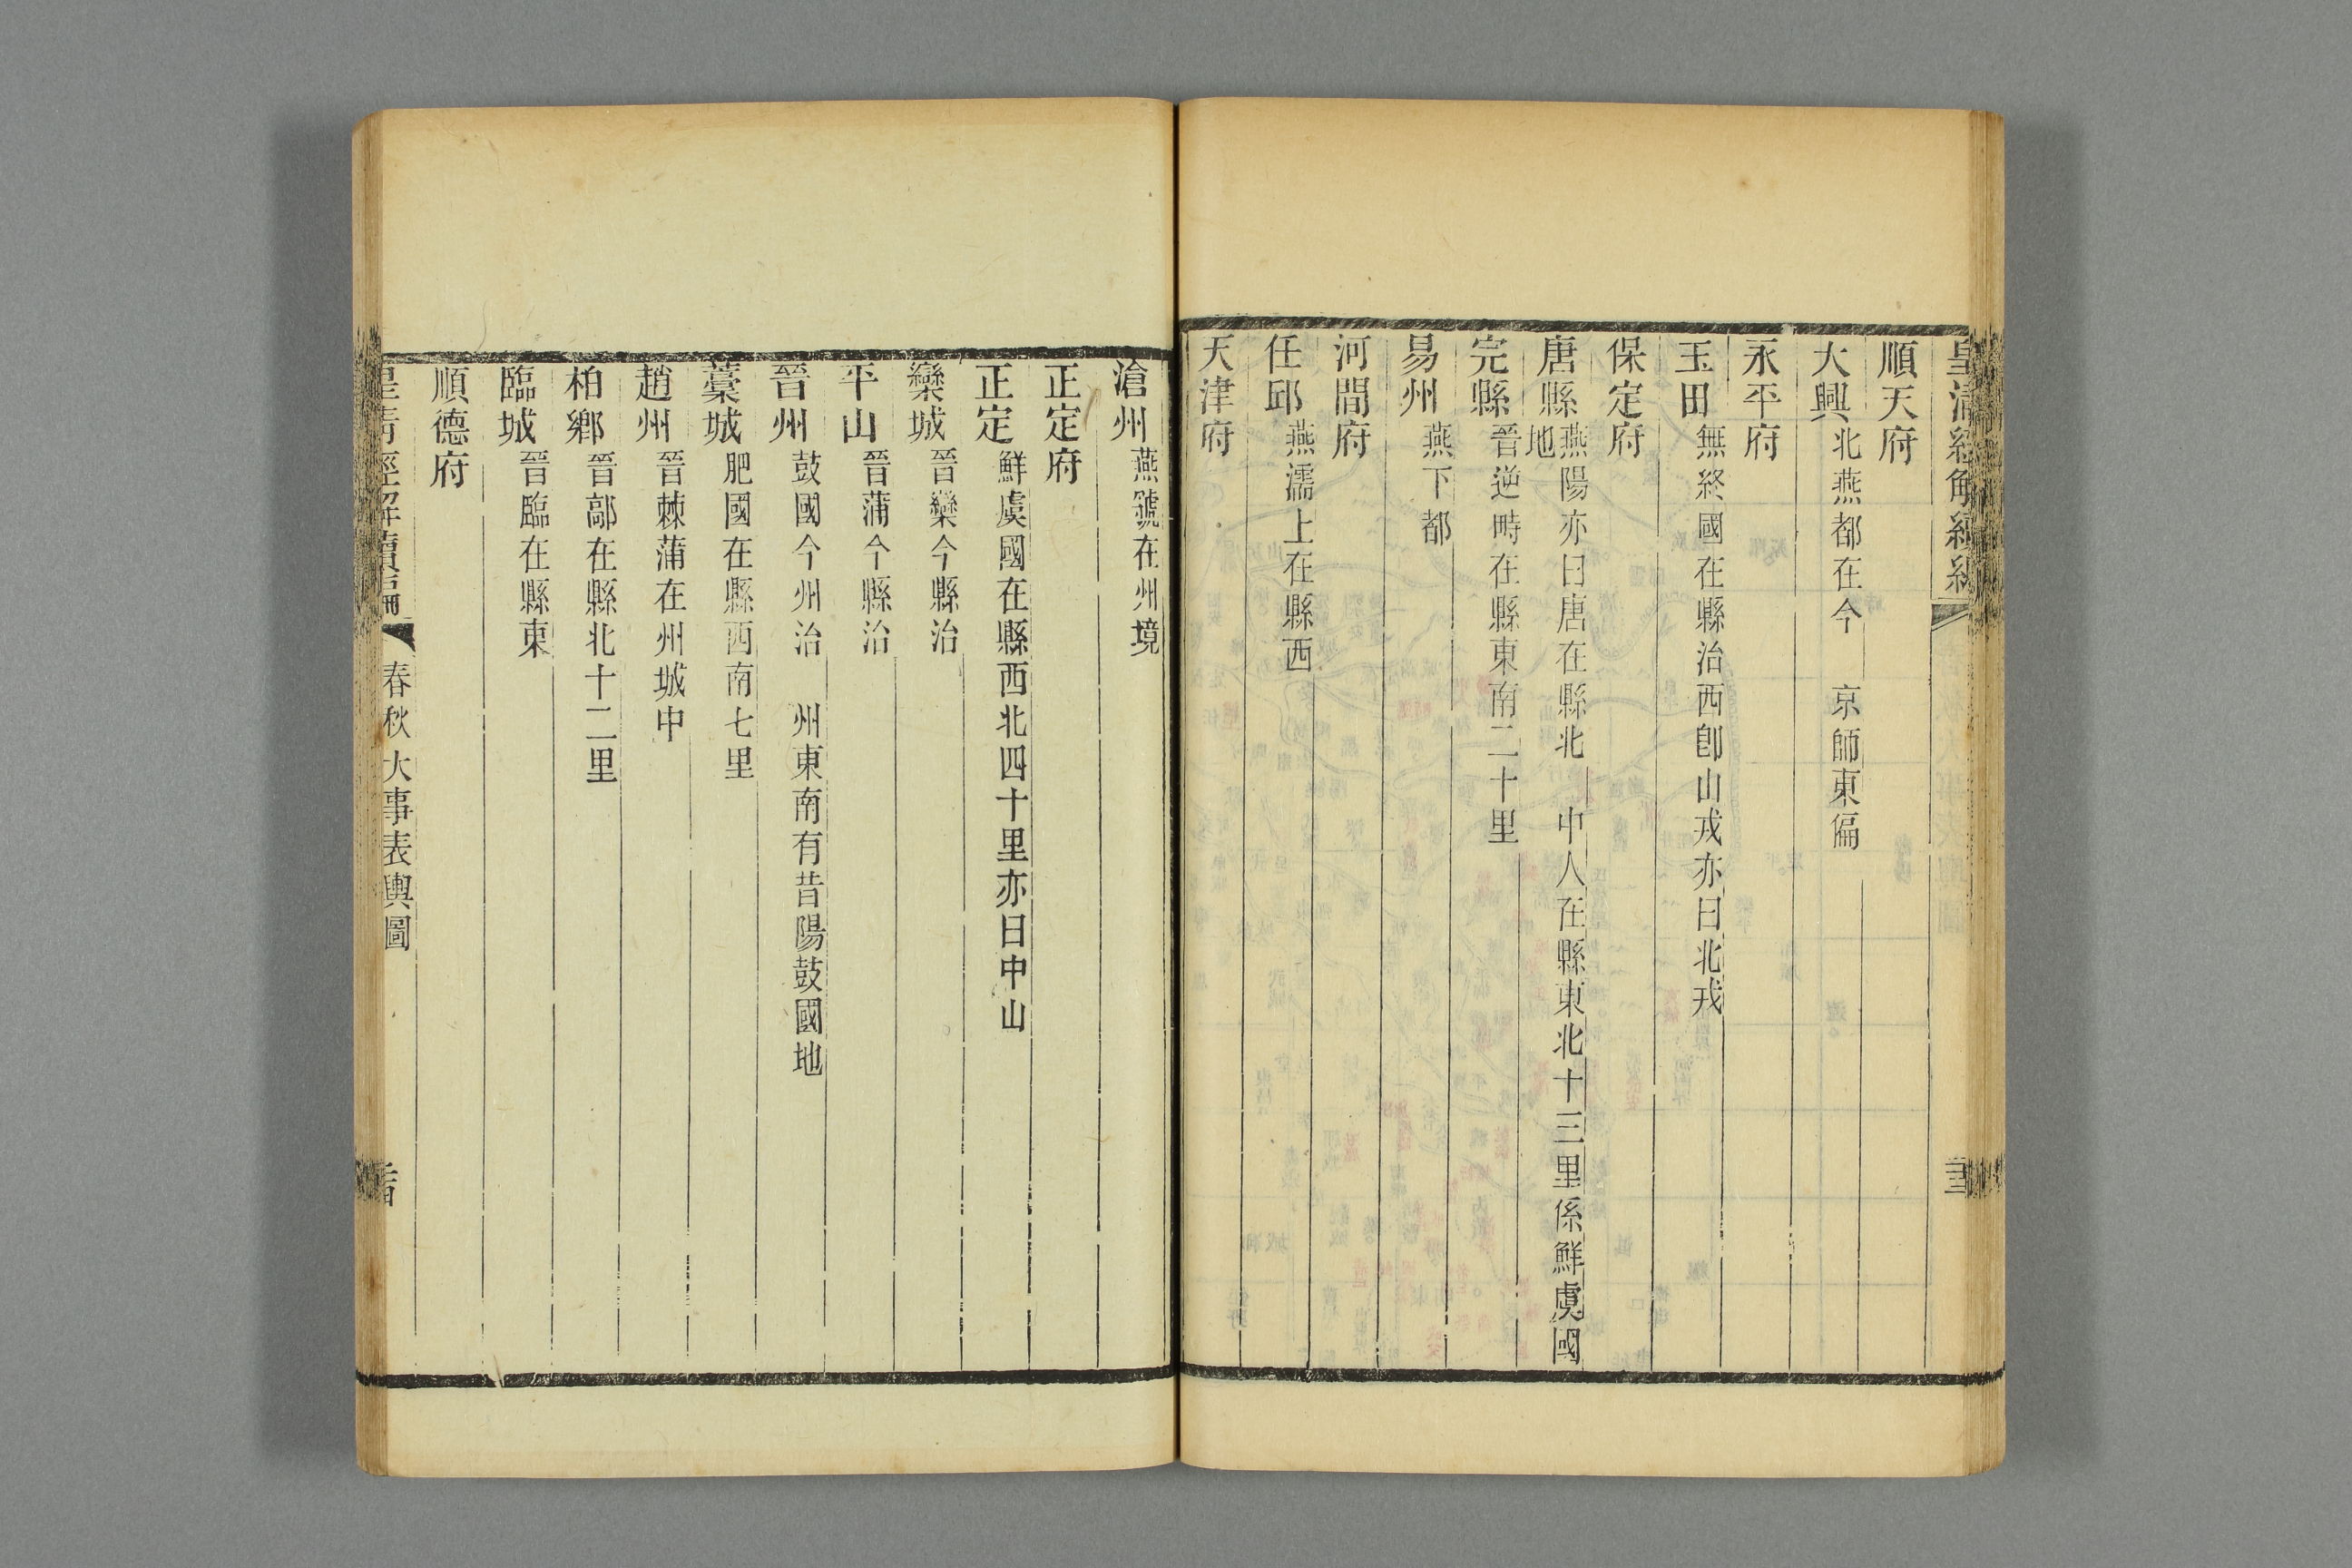 皇清經解續編
順天府
大興 北燕都在今 京師東偏
永平府
玉田 無終國在縣治西卽山戎亦曰北戎
保定府
唐縣 燕陽亦曰唐在縣北 中人在縣東北十三里係鮮虞國
地
完縣 晉逆畤在縣東南二十里
易州 燕下都
河間府
任邱 燕濡上在縣西
天津府
滄州 燕虢在州境
正定府
正定 鮮虞國在縣西北四十里亦曰中山
欒城 晉欒今縣治
平山 晉蒲今縣治
晉州 鼓國今州治 州東南有昔陽鼓國地
藁城 肥國在縣西南七里
趙州 晉棘蒲在州城中
柏鄉 晉鄗在縣北十二里
臨城 晉臨在縣東
順德府
皇清經解續編 春秋大事表輿圖